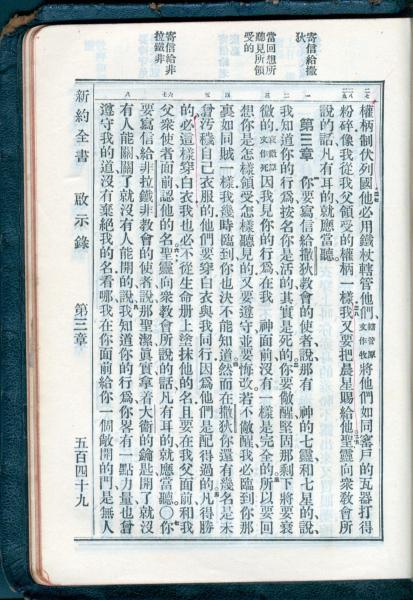 寄信給撒
狄
當回想所
聽見所領
受的
寄信給非
拉鐵非
權柄制伏列國他必用鐵杖轄管他們轄管原文作牧將他們如同窰戶的瓦器打得
粉碎像我從我父領受的權柄一樣我又要把晨星賜給他聖靈向衆教會所
說的話凡有耳的就應當聽
第三章 你要寫信給撒狄教會的使者說那有 神的七靈和七星的說
我知道你的行爲按名你是活的其實是死的你要儆醒堅固那剩下將要衰
微的衰微原文作死因我見你的行爲在我 神面前沒有一樣是完全的所以要回
想你是怎樣領受怎樣聽見的又要遵守並要悔改若不儆醒我必臨到你那
裏如同賊一樣我幾時臨到你也決不能知道然而在撒狄你還有幾名是未
曾汚穢自己衣服的他們要穿白衣與我同行因爲他們是配得過的凡得勝
的必這樣穿白衣我也必不從生命册上塗抹他的名且要在我父面前和我
父衆使者面前認他的名聖靈向衆教會所說的話凡有耳的就應當聽〇你
要寫信給非拉鐵非教會的使者說那聖潔眞實拿着大衛的鑰匙開了就沒
有人能關關了就沒有人能開的說我知道你的行爲你畧有一點力量也曾
遵守我的道沒有棄絕我的名看哪我在你面前給你一個敞開的門是無人
新約全書 啟示錄 第三章 五百四十九